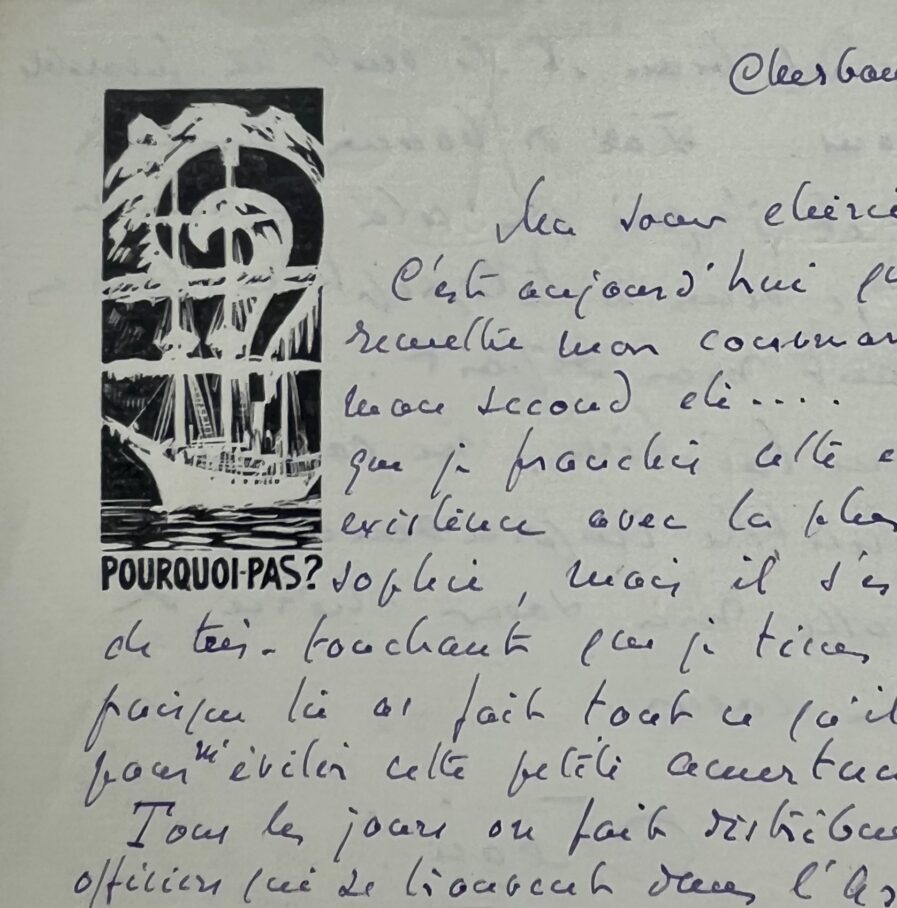 Cherbou
Ma soeur chérie
C'est aujourd'hui qu
remettre mon comman
mon second et....
que je franchis cette e
existence avec la plus
POURQUOI-PAS?
sophie, mais il s'es
de très-touchant que je tiens
puisque tu as fait tout ce qu'il
pour m'éviter cette petite amertum
Tous les jours on fait distribue
officiers qui se trouvent dans l'Ar